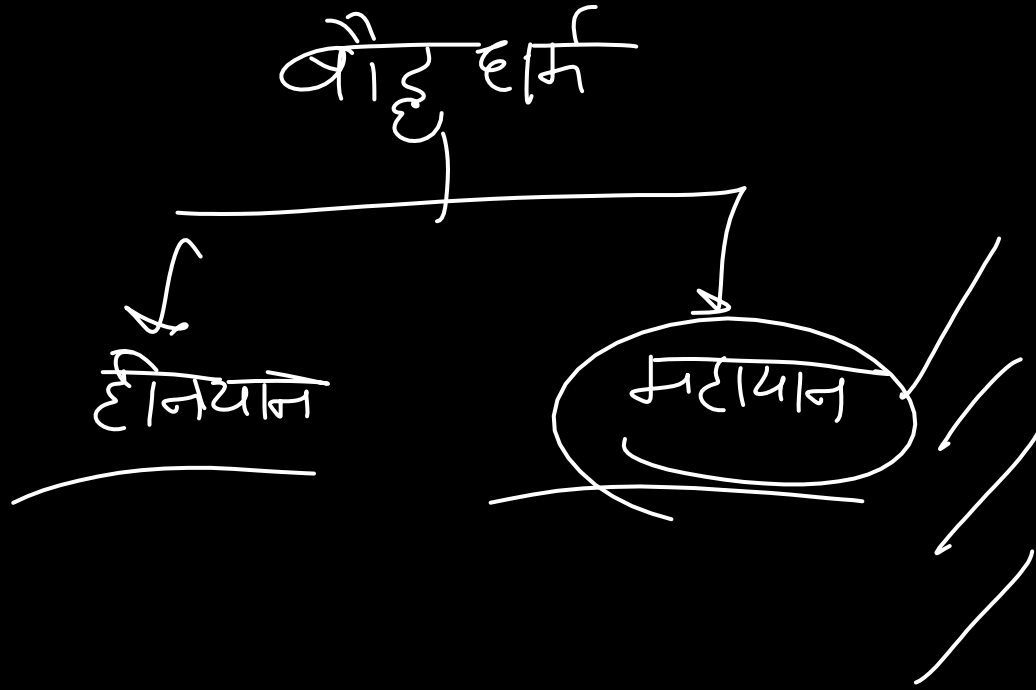 बौद्ध धर्म
हीनयान
महायान